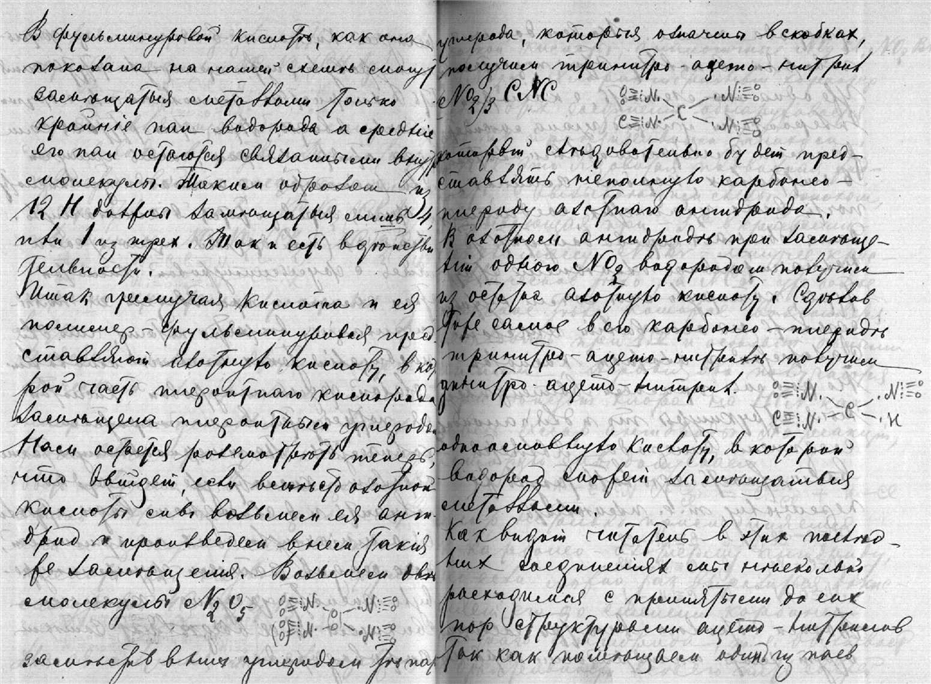 В фульминуровой кислоте, как она
показана на нашей схеме могут
замещаться металлами только
крайние паи водорода а средние
его паи остаются связанными внутр
молекулы. Таким образом из
12 Н должны замещаться лишь 4
или 1 из трех. Так и есть в действи
тельности.
Итак гремучая кислота и ея
полимер - фульминуровая пред
ставляют азотную кислоту, в ко
рой часть кислорода
замещена углеродом
Нам остается рассмотреть теперь,
что выйдет, если вместо азотной
кислоты мы возьмем ея анги
дрид и произведем в нем такия
же замещения. Возьмем две
молекулы N2O5
заместив в них углеродом три па
углерода, которыя означены в скобках,
получим тринитро-ацето-нитрил
(NO2)3 CNC
который следовательно будет пред-
ставлять неполную карбонео-
азотнаго ангидрида.
В азотном ангидриде при замеще-
нии одного NO2 водородом получим
из остатка азотную кислоту. Сделав
тоже самое в его карбонео-
тринитро-ацето-нитриле получим
динитро-ацето-нитрил.
одноосновную кислоту, в которой
водород может замещаться
металлами.
Как видит читатель в этих послед-
них соединениях мы несколько
расходимся с принятыми до сих
пор структурами ацето-нитрилов
так как помещаем один из паев